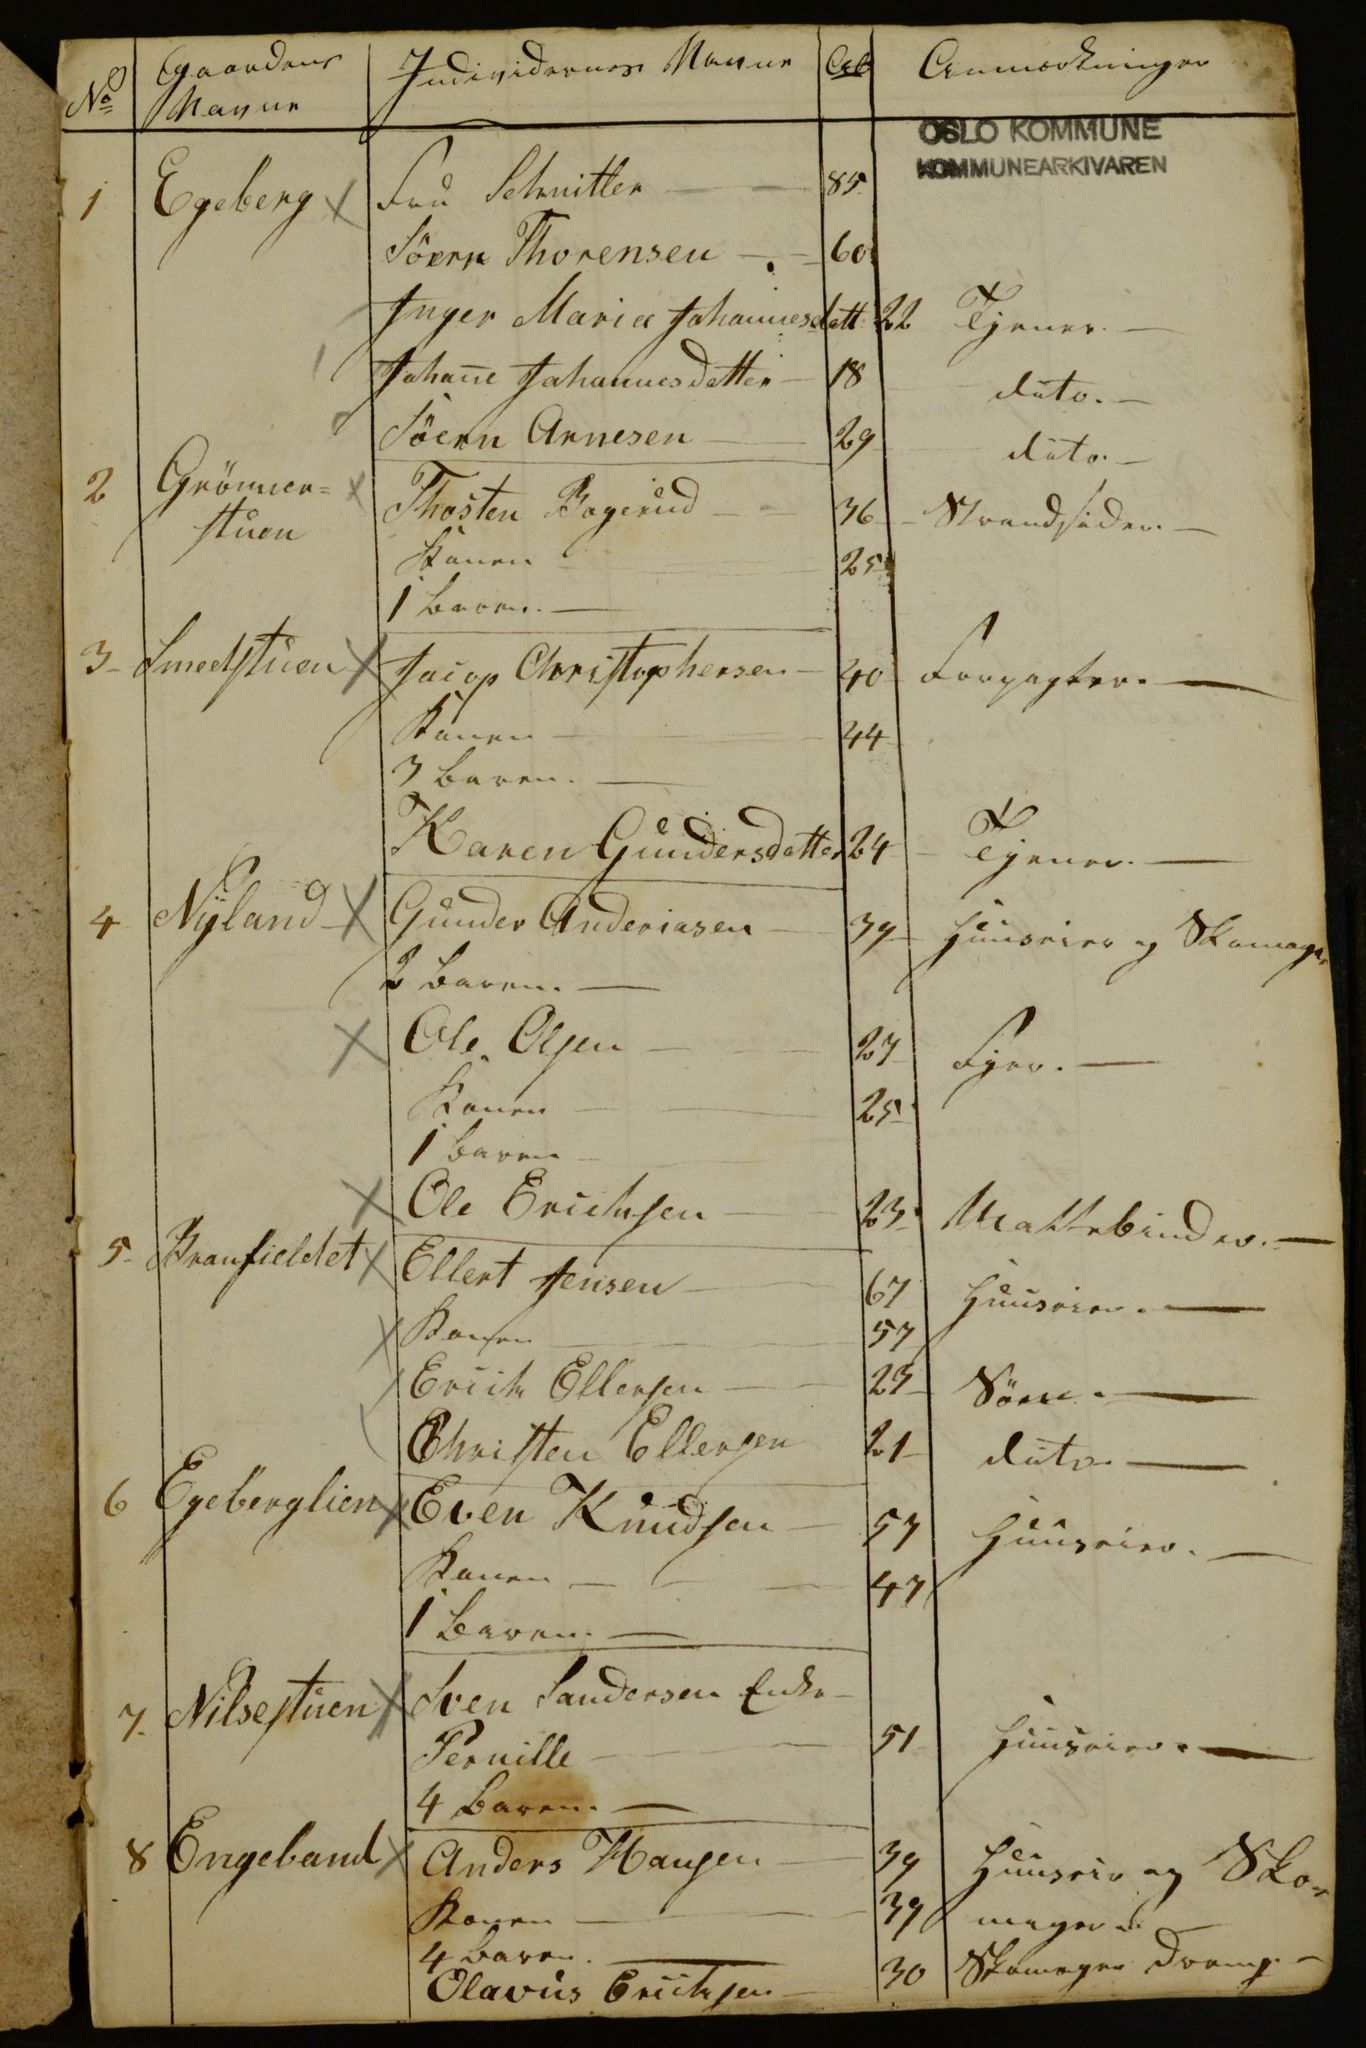 No Gaardens Navne Individernes Navne Alb Anmærkninger
OSLO KOMMUNE
KOMMUNEARKIVAREN
1 Egeberg Fru Schnitler 85
Söern Thorensen 60
Inger Maria Johannesdatt: 22 Tjener
Johane Johannesdatter 18 dito
Söern Arnesen 29 dito
2 Grönner=stuen Thosten Bogerud 36 Strandsider
Konen 25
1 Baren
3 Smedstuen Jacop Christophersen 40 Forpagter
Konen 44
3 Baren
Karen Gundersdatter 24 Tjener
4 Nyland Gunder Anderiasen 39 Huuseier og Skomager
2 Baren
Ole Olsen 27 Fyer
Konen 25
1 Baren
Ole Erichsen 23 Mattebinder
5 Branfieldet Ellert Jensen 67 Huuseier
Konen 57
Erich Ellersen 23 Sönn
Christen Ellersen 21 dito
6 Egeberglien Even Knudsen 57 Huuseier
Konen 47
1 Baren
7 Nilsestuen Sven Sandersen Enke
Pernille 51 Huuseier
4 Baren
8 Engeband Anders Hansen 39 Huuseir og Sko=
Konen 39 mager
4 Baren
Olavus Erichsen 30 Skomager Dreng